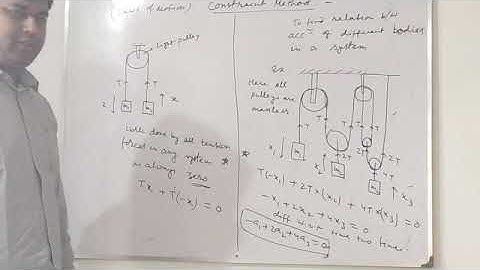 Constraint Method -
To find relation b/w
accⁿ of different bodies
in a system
Light pulley
T T
x
x
m₁ m₂
Work done by all tension
forces in any system
is always zero
Tx + T(-x) = 0
Ex
Here all
pulleys are
massless
T T T T
2T 2T
4T
x₁ m₁
x₂ m₂
m₃ x₃
T(-x₁) + 2T x(x₂) + 4T x(x₃) = 0
-x₁ + 2x₂ + 4x₃ = 0
diff w.r.t time two times
-a₁ + 2a₂ + 4a₃ = 0